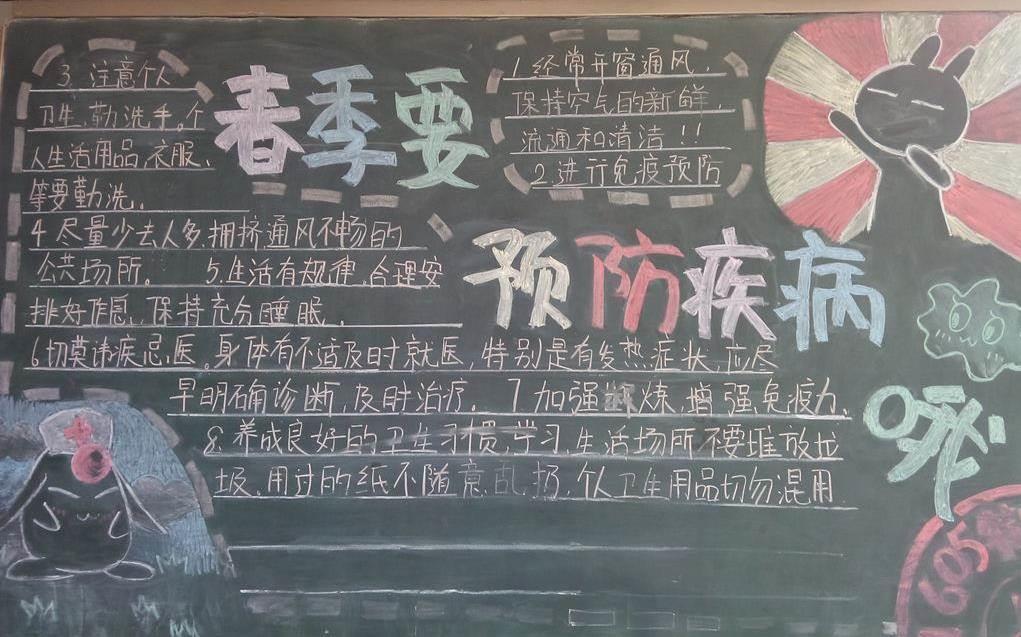 春季要
预防疾病
1.经常开窗通风,
保持空气的新鲜,
流通和清洁!!
2.进行免疫预防
3.注意个人
卫生,勤洗手。个
人生活用品,衣服、
等要勤洗.
4.尽量少去人多,拥挤通风不畅的
公共场所。 5.生活有规律,合理安
排好作息,保持充分睡眠.
6.切莫讳疾忌医。身体有不适及时就医,特别是有发热症状,应尽
早明确诊断,及时治疗. 7.加强锻炼,增强免疫力.
8.养成良好的卫生习惯,学习,生活场所不要堆放垃
圾,用过的纸不随意乱扔,个人卫生用品切勿混用
605